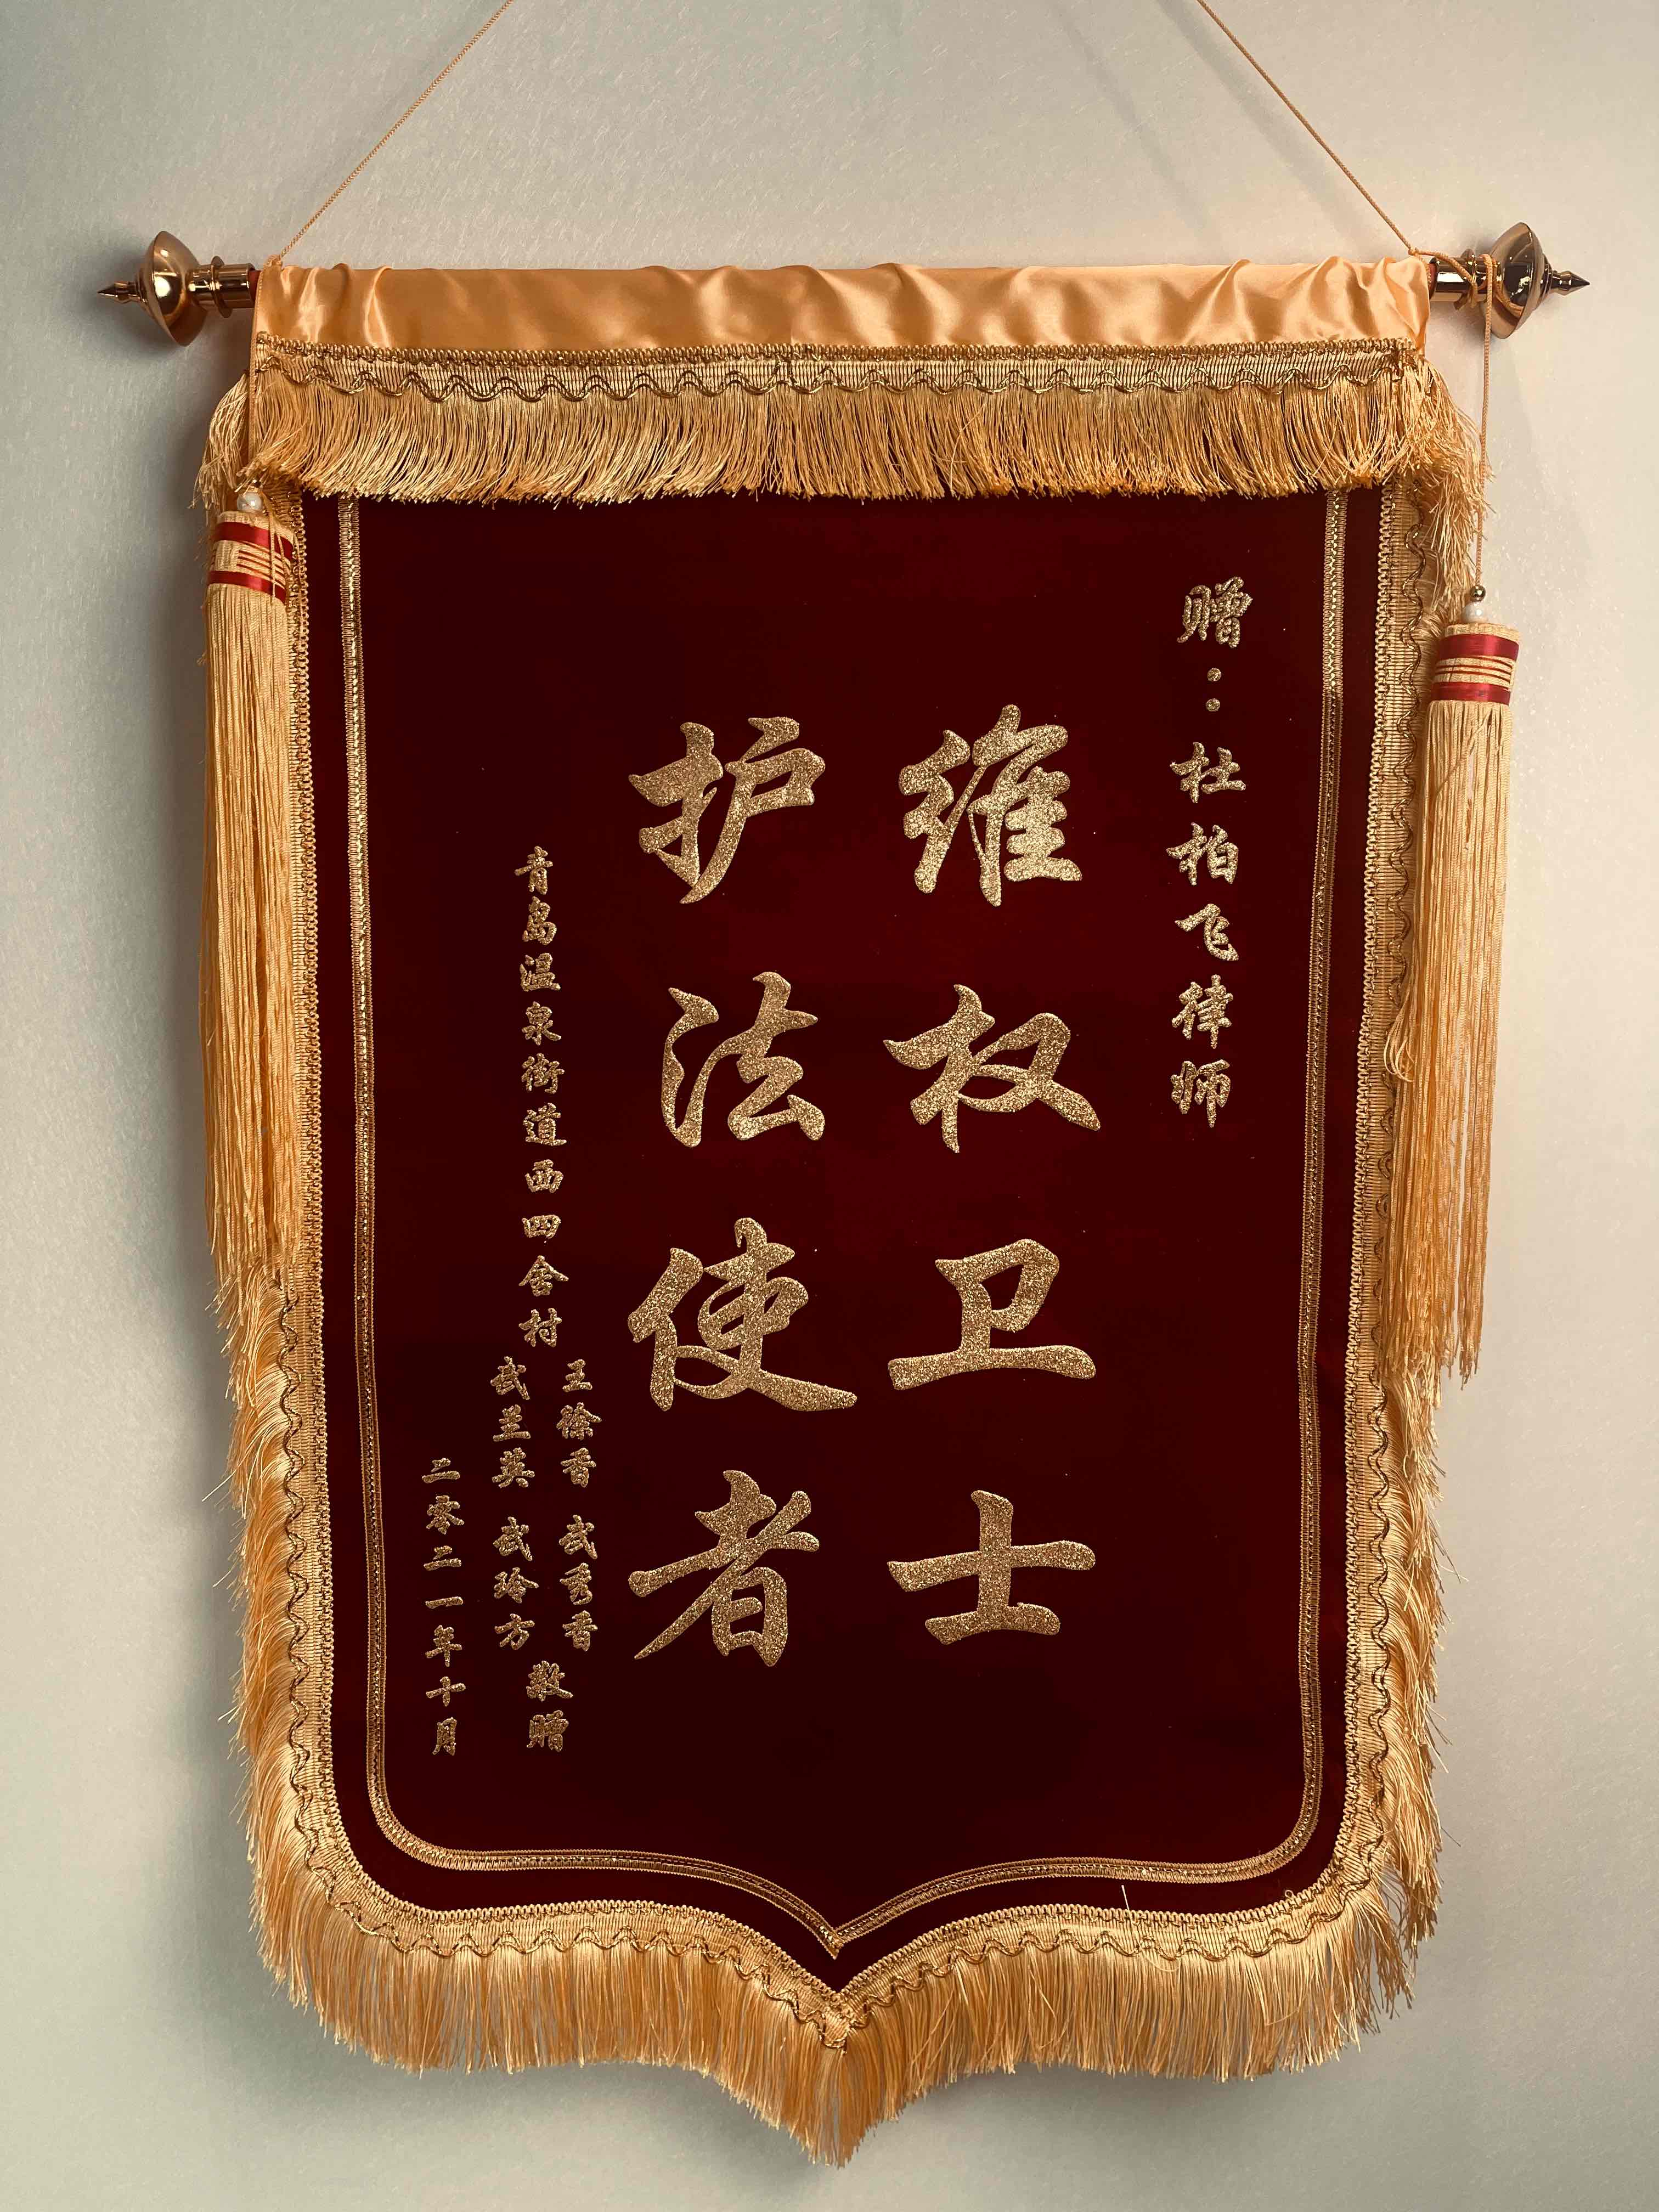 赠：杜柏飞律师
维权卫士
护法使者
青岛温泉街道西四舍村
王徐香 武秀香
武兰英 武玲方
敬赠
二零二一年十月